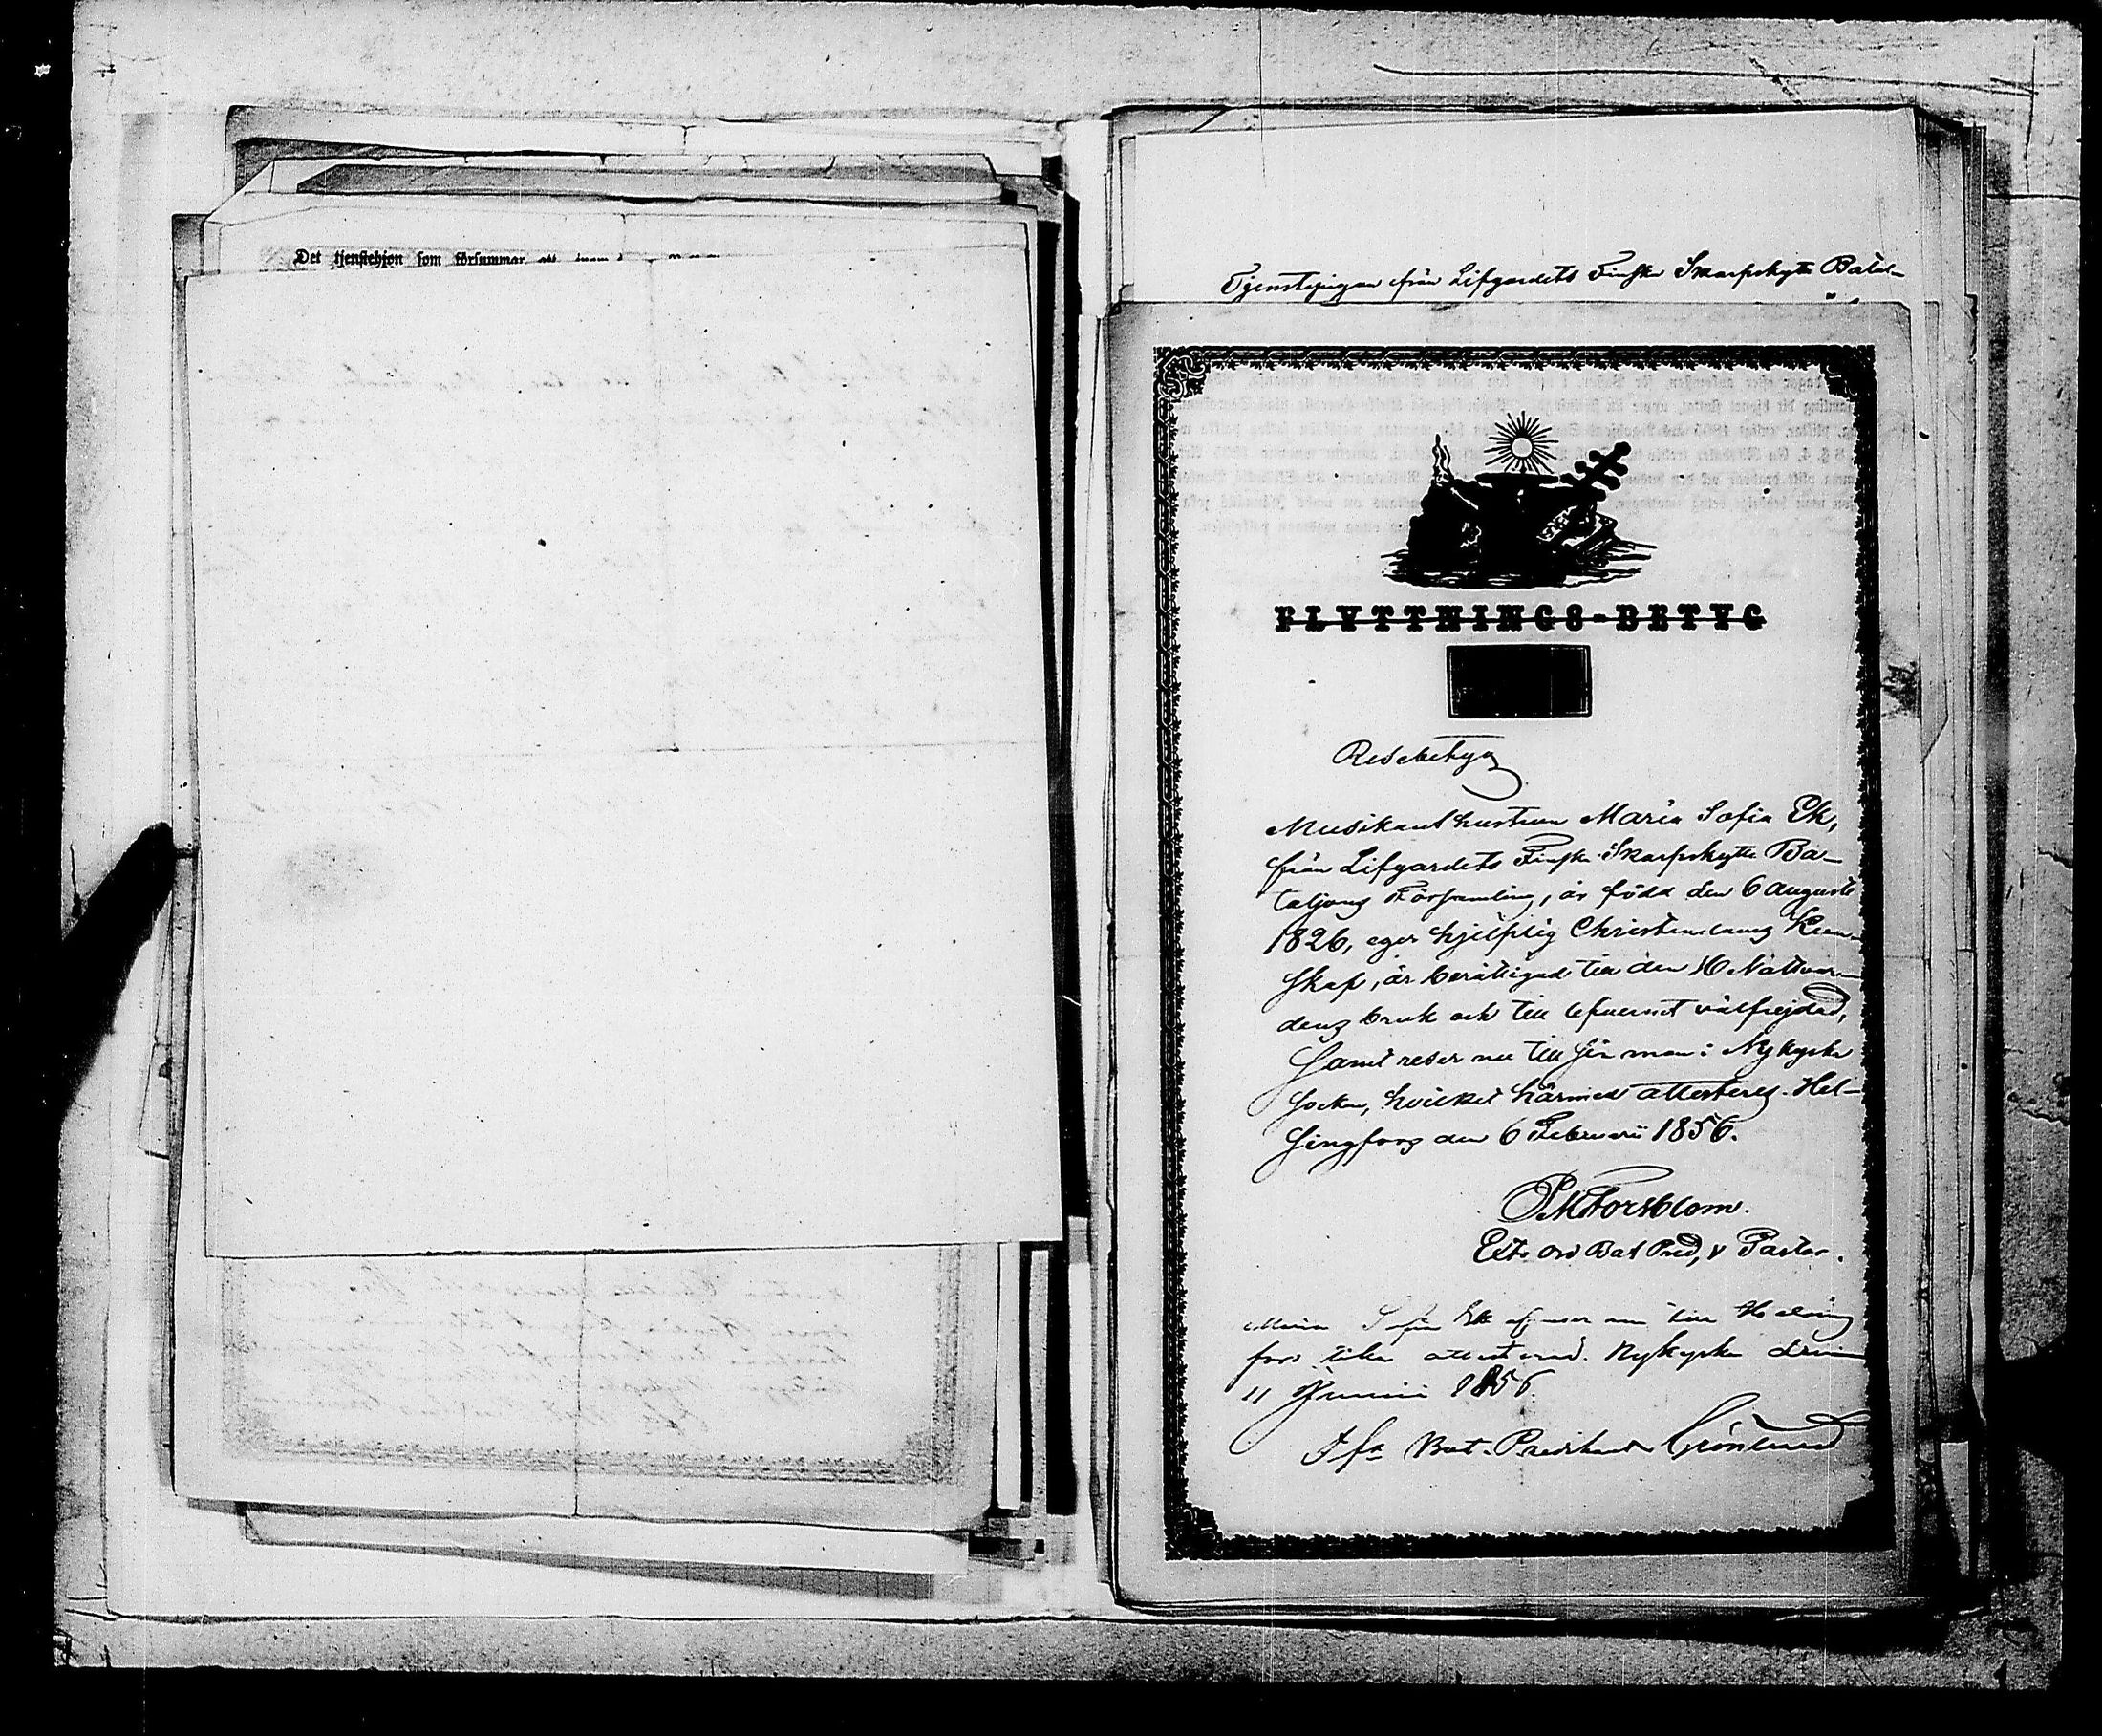 Det tjenstehjon som försummar att inom
Tjenstepigan från Lifgardets Finska Skarpskytte Batal-
FLYTTNINGS-BETYG
Resebetyg
Musikanthustrun Maria Sofia Ek,
från Lifgardets Finska Skarpskytte Ba-
taljons Församling, är född den 6 Augusti
1826, eger hjelplig Christendoms Kun-
skap, är berättigad till den H Nattvar-
dens bruk och till lefvernet välfrejdad,
samt reser nu till sin man i Nykyrka
Socken, hvilket härmed attesteras. Hel-
singfors den 6 Februarii 1856.
Forsblom.
Extr Ord Bat Pred, v Pastor.
Maria Sofia Ek afreser nu till Helsing
fors attesterad. Nykyrka den
11 Junii 1856.
Bat. Predikant Grönlund